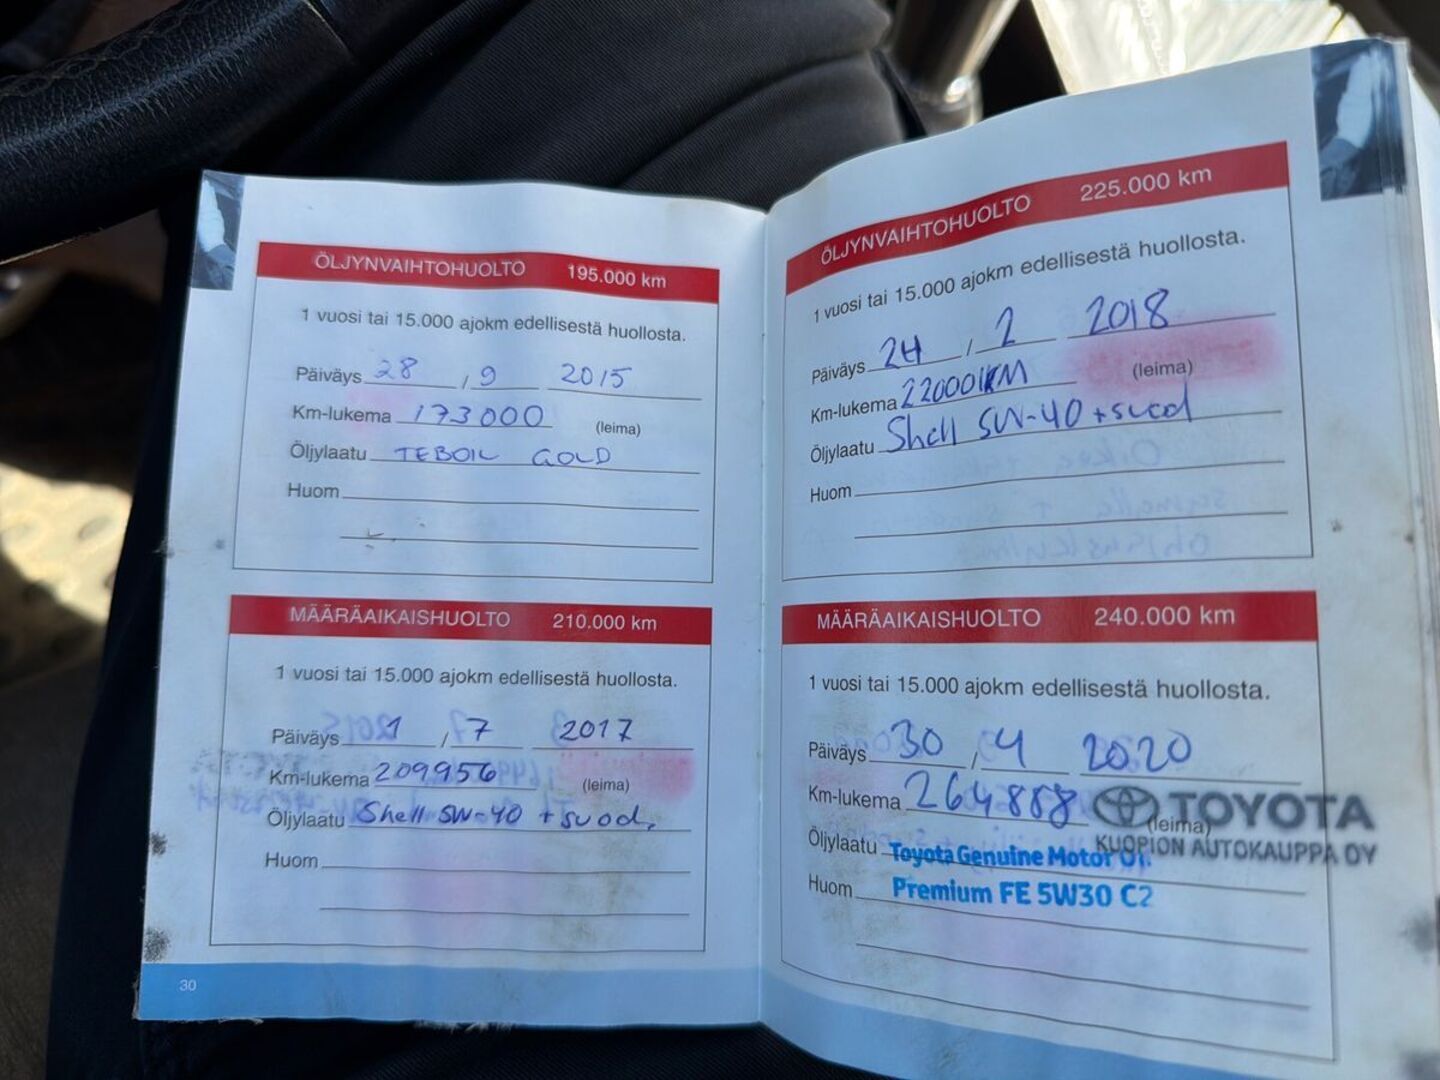 ÖLJYNVAIHTOHUOLTO 195.000 km
1 vuosi tai 15.000 ajokm edellisestä huollosta.
Päiväys 28 / 9 2015
Km-lukema 173000 (leima)
Öljylaatu TEBOIL GOLD
Huom
MÄÄRÄAIKAISHUOLTO 210.000 km
1 vuosi tai 15.000 ajokm edellisestä huollosta.
Päiväys 1 / 7 2017
Km-lukema 209956 (leima)
Öljylaatu Shell 5W-40 + suod.
Huom
30
ÖLJYNVAIHTOHUOLTO 225.000 km
1 vuosi tai 15.000 ajokm edellisestä huollosta.
Päiväys 24 / 2 2018
Km-lukema 220001KM (leima)
Öljylaatu Shell 5W-40 + suod
Huom
MÄÄRÄAIKAISHUOLTO 240.000 km
1 vuosi tai 15.000 ajokm edellisestä huollosta.
Päiväys 30 / 4 2020
Km-lukema 264888 (leima) TOYOTA
KUOPION AUTOKAUPPA OY
Öljylaatu Toyota Genuine Motor Oil
Huom Premium FE 5W30 C2